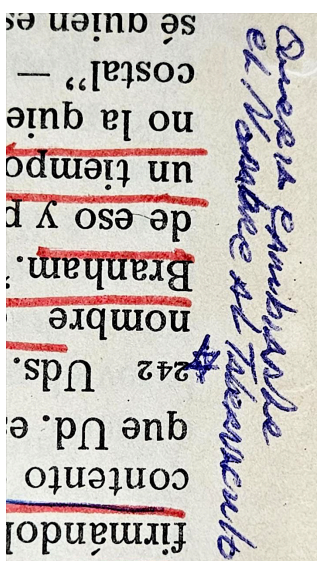 firmándol
contento
que Ud. e
242 Uds.
nombre
Branham.
de eso y p
un tiempo
no la quie
costal” —
sé quien es
Queria CambiarLe
el Nombre Al Tabernaculo